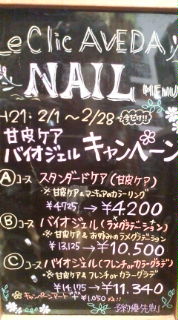 Le Clic AVEDA
NAIL MENU
H21. 2/1 〜 2/28
甘皮ケア
バイオジェル キャンペーン
Aコース スタンダードケア(甘皮ケア)
※甘皮ケア&マニキュアorカラーリング
¥4725 → ¥4200
Bコース バイオジェル(ラメグラデーション)
※甘皮ケア&
¥13,125 → ¥10,500
Cコース バイオジェル(フレンチorカラーグラデ)
※甘皮ケア&フレンチorカラーグラデ
¥14,175 → ¥11,340
¥1,050
予約優先制